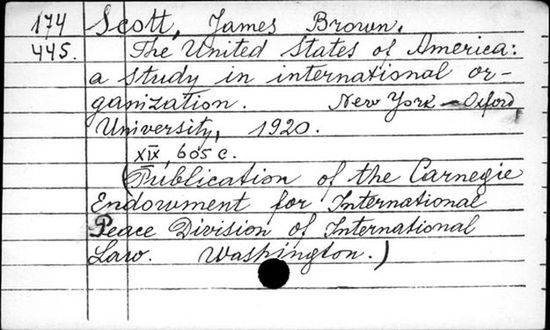 174 Scott, James Brown.
445. The United States of America:
a study in international or-
ganization. New York - Oxford
University, 1920.
XIX, 605 c.
(Publication of the Carnegie
Endowment for International
Peace Division of International
Law. Washington.)